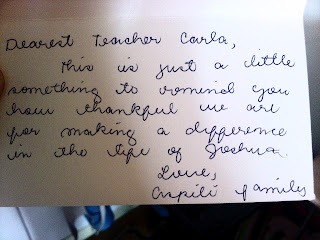 Dearest Teacher Carla,
This is just a little
something to remind you
how thankful we are
for making a difference
in the life of Joshua.
Love,
Crapili family